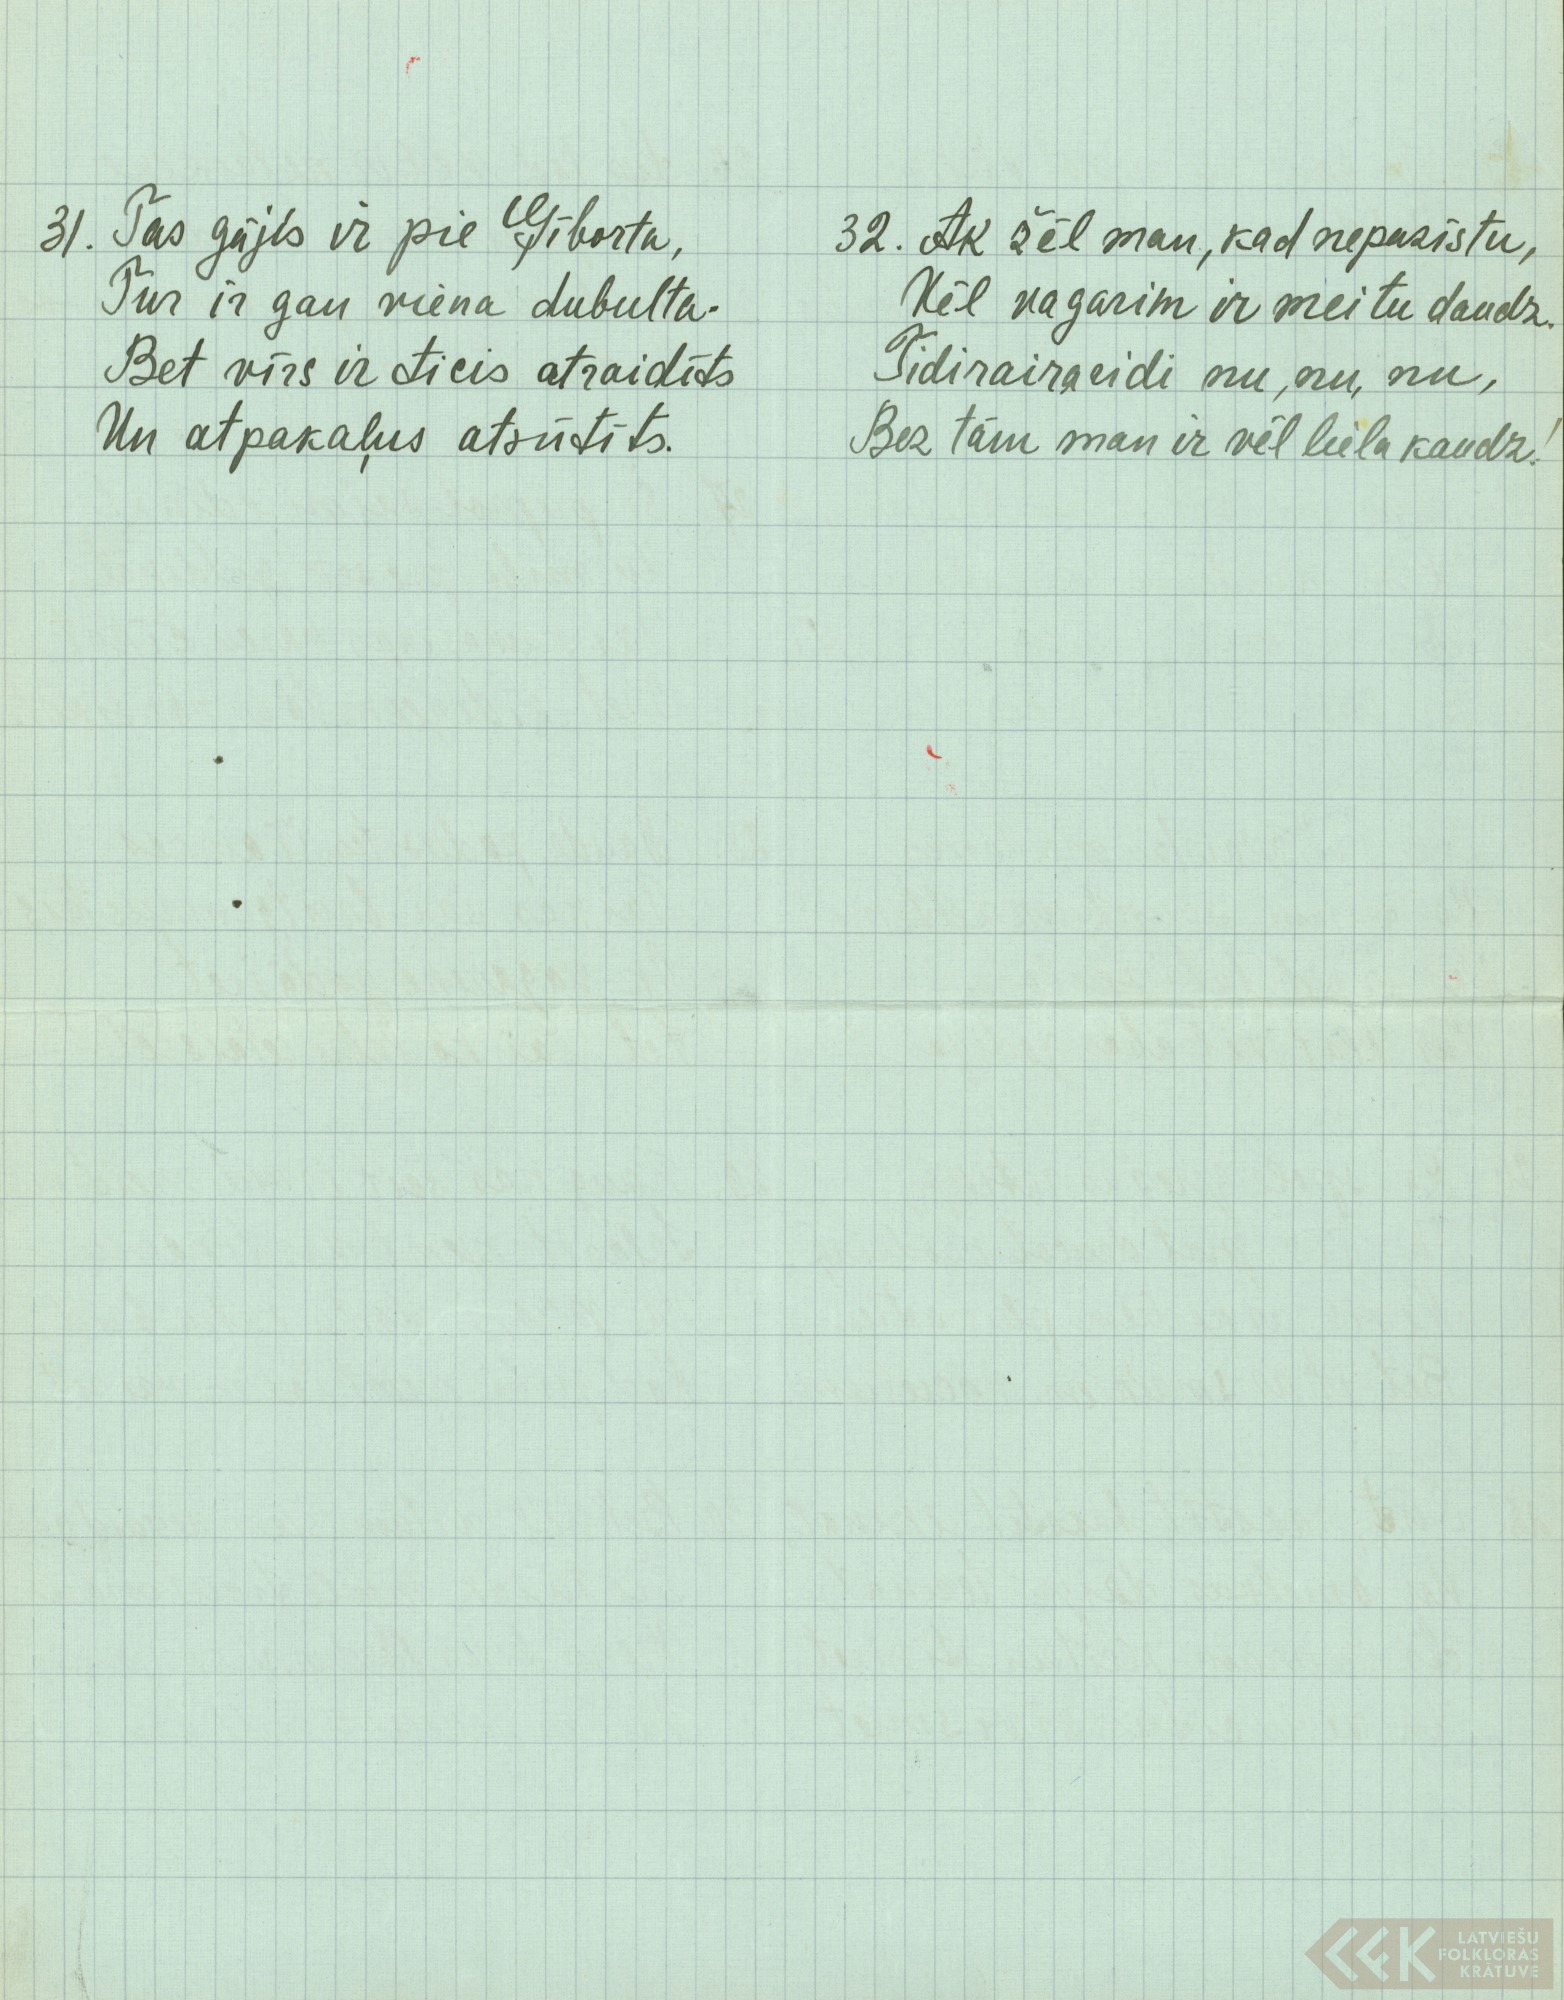 31. Tas gājis ir pie Ģīborta,
Tur ir gan viena dubulta.
Bet vīrs ir ticis atraidīts
Un atpakaļus atsūtīts.
32. Ak žēl man, kad nepazīstu,
Vēl vagarim ir meitu daudz.
Tidirairaridi nu, nu, nu,
Bez tām man ir vēl liela kaudz!
LATVIEŠU
FOLKLORAS
KRĀTUVE